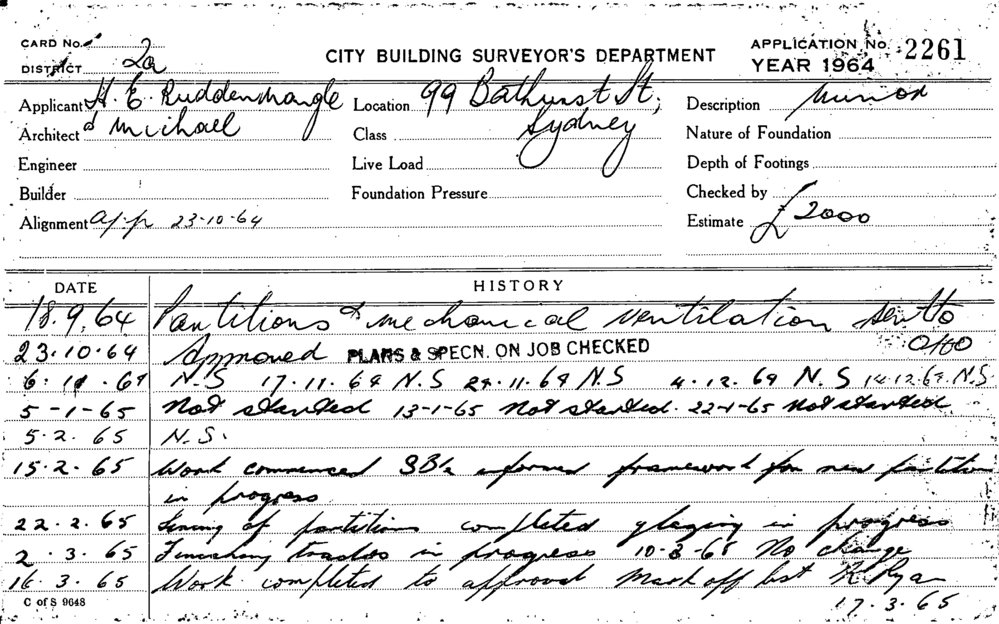 CARD No.
DISTRICT 2a
CITY BUILDING SURVEYOR'S DEPARTMENT
APPLICATION No. 2261
YEAR 1964
Applicant H. E. Ruddenmangle
Location 99 Bathurst St,
Description minor
Architect & Michael
Class Sydney
Nature of Foundation
Engineer
Live Load
Depth of Footings
Builder
Foundation Pressure
Checked by
Alignment app 23-10-64
Estimate £2000
DATE HISTORY
18.9.64 Partitions & mechanical ventilation sent to
23.10.64 Approved PLANS & SPECN. ON JOB CHECKED
6.11.64 N.S 17.11.64 N.S 24.11.64 N.S 4.12.64 N.S 14.12.64 N.S
5-1-65 Not started 13-1-65 Not started. 22-1-65 Not started
5.2.65 N.S.
15.2.65 Work commenced informed framework for new partition
in progress
22.2.65 Lining of partitions completed glazing in progress
2.3.65 Finishing trades in progress 10-3-65 No change
16.3.65 Work completed to approval Mark off list K Ryan
17.3.65
C of S 9648